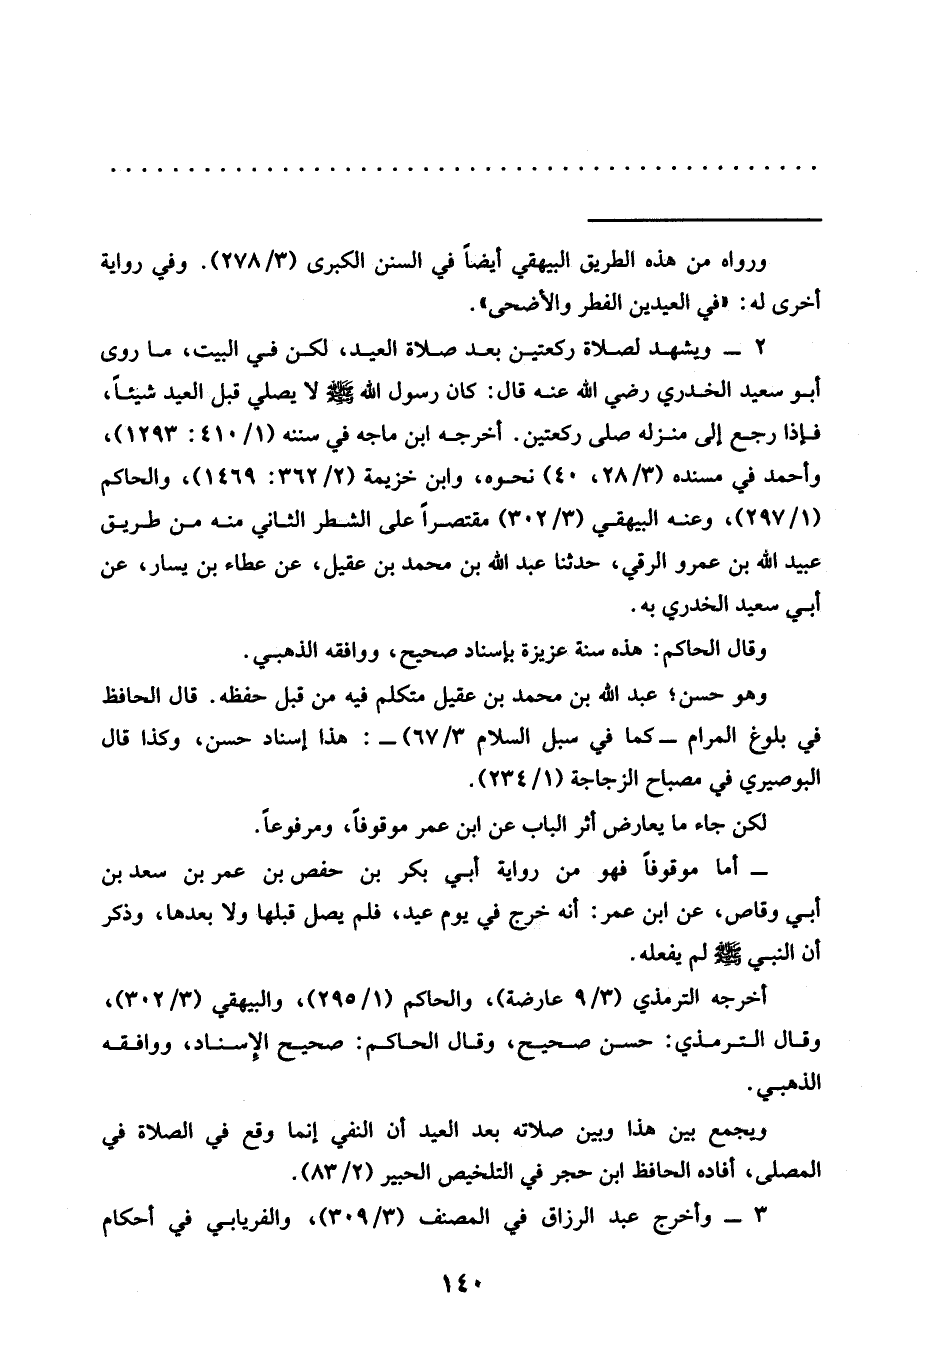 . . . . . . . . . . . . . . . . . . . . . . . . . . . . . . . . . . . . . . . . . . . . . .
ورواه من هذه الطريق البيهقي أيضاً في السنن الكبرى (٣/ ٢٧٨). وفي رواية
أخرى له: «في العيدين الفطر والأضحى».
٢ ـ ويشهد لصلاة ركعتين بعد صلاة العيد، لكن في البيت، ما روى
أبو سعيد الخدري رضي الله عنه قال: كان رسول الله ﷺ لا يصلي قبل العيد شيئاً،
فإذا رجع إلى منزله صلى ركعتين. أخرجه ابن ماجه في سننه (١/ ٤١٠: ١٢٩٣)،
وأحمد في مسنده (٣/ ٢٨، ٤٠) نحوه، وابن خزيمة (٢/ ٣٦٢: ١٤٦٩)، والحاكم
(١/ ٢٩٧)، وعنه البيهقي (٣/ ٣٠٢) مقتصراً على الشطر الثاني منه من طريق
عبيد الله بن عمرو الرقي، حدثنا عبد الله بن محمد بن عقيل، عن عطاء بن يسار، عن
أبي سعيد الخدري به.
وقال الحاكم: هذه سنة عزيزة بإسناد صحيح، ووافقه الذهبي.
وهو حسن؛ عبد الله بن محمد بن عقيل متكلم فيه من قبل حفظه. قال الحافظ
في بلوغ المرام ـ كما في سبل السلام ٣/ ٦٧) ـ : هذا إسناد حسن، وكذا قال
البوصيري في مصباح الزجاجة (١/ ٢٣٤).
لكن جاء ما يعارض أثر الباب عن ابن عمر موقوفاً، ومرفوعاً.
ـ أما موقوفاً فهو من رواية أبي بكر بن حفص بن عمر بن سعد بن
أبي وقاص، عن ابن عمر: أنه خرج في يوم عيد، فلم يصل قبلها ولا بعدها، وذكر
أن النبي ﷺ لم يفعله.
أخرجه الترمذي (٣/ ٩ عارضة)، والحاكم (١/ ٢٩٥)، والبيهقي (٣/ ٣٠٢)،
وقال الترمذي: حسن صحيح، وقال الحاكم: صحيح الإسناد، ووافقه
الذهبي.
ويجمع بين هذا وبين صلاته بعد العيد أن النفي إنما وقع في الصلاة في
المصلى، أفاده الحافظ ابن حجر في التلخيص الحبير (٢/ ٨٣).
٣ ـ وأخرج عبد الرزاق في المصنف (٣/ ٣٠٩)، والفريابي في أحكام
١٤٠